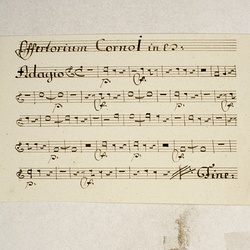 Offertorium Corno I in C
Adagio
Fine: